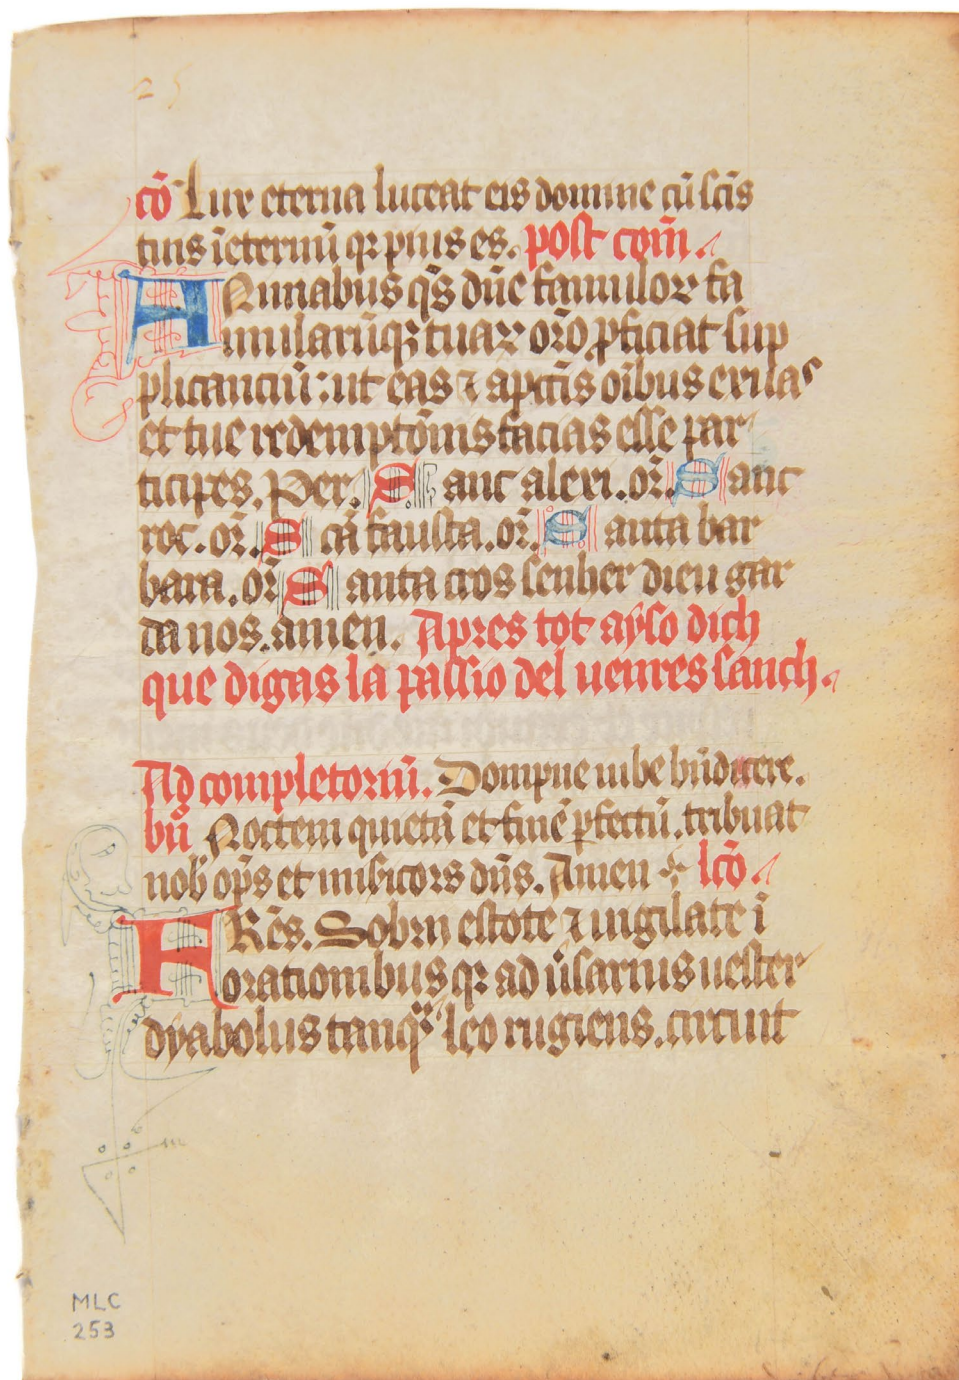 25
cō Lux eterna luceat eis domine cū scīs
tuis īeternū qꝛ pius es. post com̄.
Animabus q̄s dn̄e famuloꝝ fa
mularūqꝫ tuaꝝ or̄o ꝓficiat sup
plicanciū: ut eas ⁊ a pctīs oībus exuas
et tue redemptōnis facias esse par
ticipes. Per. Sanc alexi. or̄. Sanc
roc. or̄. Scā fausta. or̄. Santa bar
bara. or̄ Santa cros senher dieu gar
da nos. amen. Apres tot ayso dich
que digas la passio del uenres sanch.
Ad completoriū. Dompne iube bn̄dicere.
bn̄ Noctem quietā et finē ꝑfectū. tribuat
nob̄ op̄s et misicors dn̄s. Amen lcō
FRēs. Sobrii estote ⁊ uigilate ī
orationibus qꝛ ad ūsarius uester
dyabolus tanqᷓ leo rugiens. circuit
MLC
253